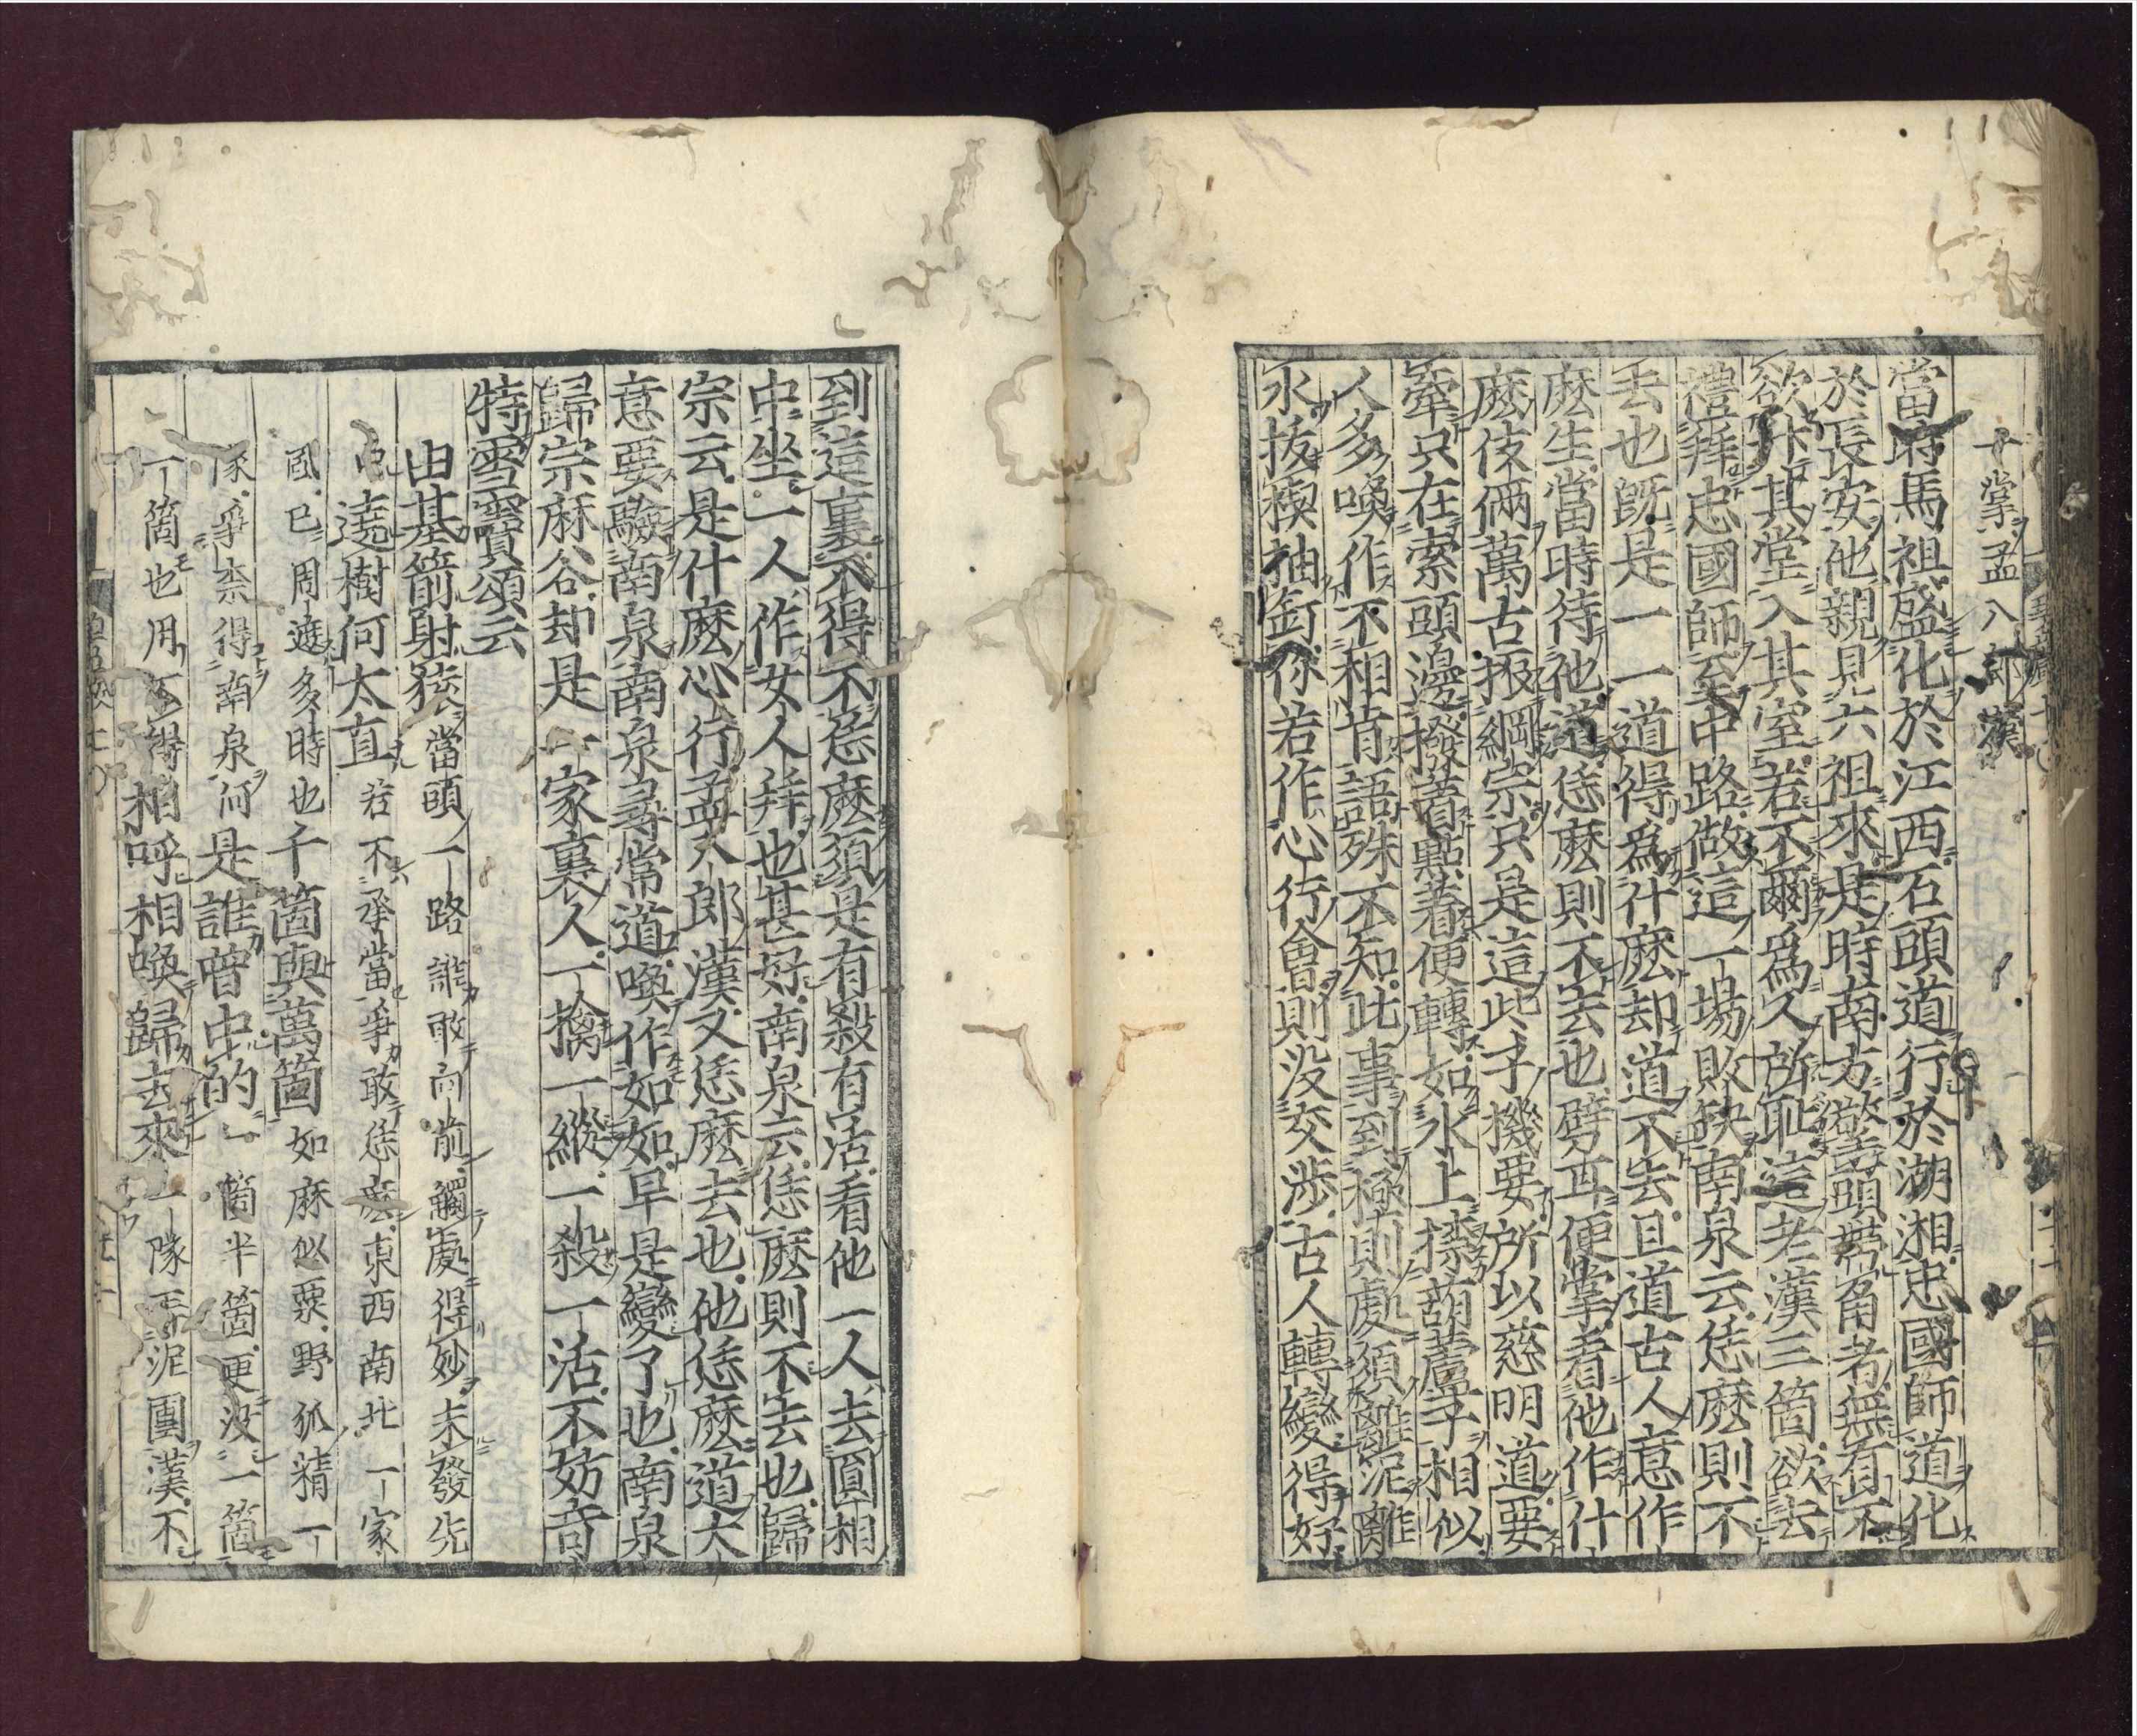 一掌孟八郎漢
當時馬祖盛化於江西石頭道行於湖湘忠國師道化
於長安他親見六祖來是時南方擎頭帶角者無有不
欲升其堂入其室若不爾爲人所恥這老漢三箇欲去
禮拜忠國師至中路做這一場敗缺南泉云恁麼則不
去也既是一一道得爲什麼却道不去且道古人意作
麼生當時待他道恁麼則不去也劈耳便掌看他作什
麼伎倆萬古振綱宗只是這些子機要所以慈明道要
牽只在索頭邊撥著點著便轉如水上捺葫蘆子相似
人多喚作不相肯語殊不知此事到極則處須離泥離
水拔楔抽釘你若作心行會則没交涉古人轉變得好
到這裏不得不恁麼須是有殺有活看他一人去圓相
中坐一人作女人拜也甚好南泉云恁麼則不去也歸
宗云是什麼心行孟八郎漢又恁麼去也他恁麼道大
意要驗南泉南泉尋常道喚作如如早是變了也南泉
歸宗麻谷却是一家裏人一擒一縱一殺一活不妨奇
特雪竇頌云
由基箭射猿當頭一路誰敢向前觸處得妙未發先
中遶樹何太直若不承當爭敢恁麼東西南北一家
風已周遮多時也千箇與萬箇如麻似粟野狐精一
隊爭柰得南泉何是誰曾中的一箇半箇更没一箇
一箇也用不得相呼相喚歸去來一隊弄泥團漢不